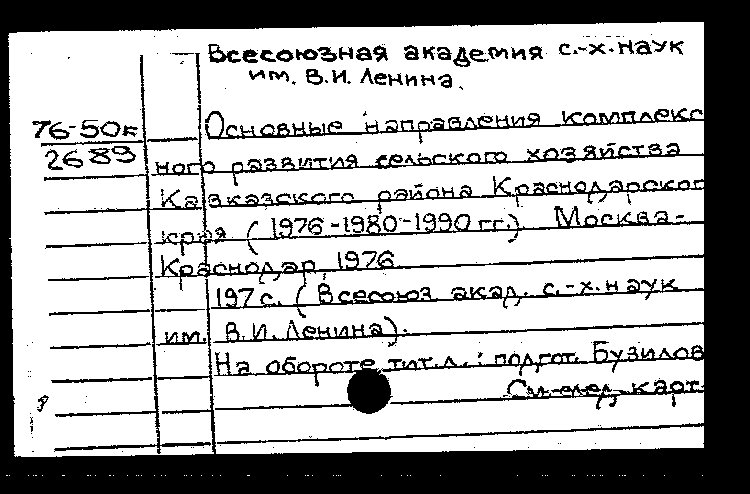 Всесоюзная академия с.-х. наук
им. В.И. Ленина.
76-50к
2689
Основные направления комплекс
ного развития сельского хозяйства
Кавказского района Краснодарског
края (1976-1980-1990 гг.). Москва-
Краснодар, 1976.
197 с. (Всесоюз. акад. с.-х. наук
им. В.И. Ленина).
На обороте тит. л.: подгот. Бузилов
См. след. карт.